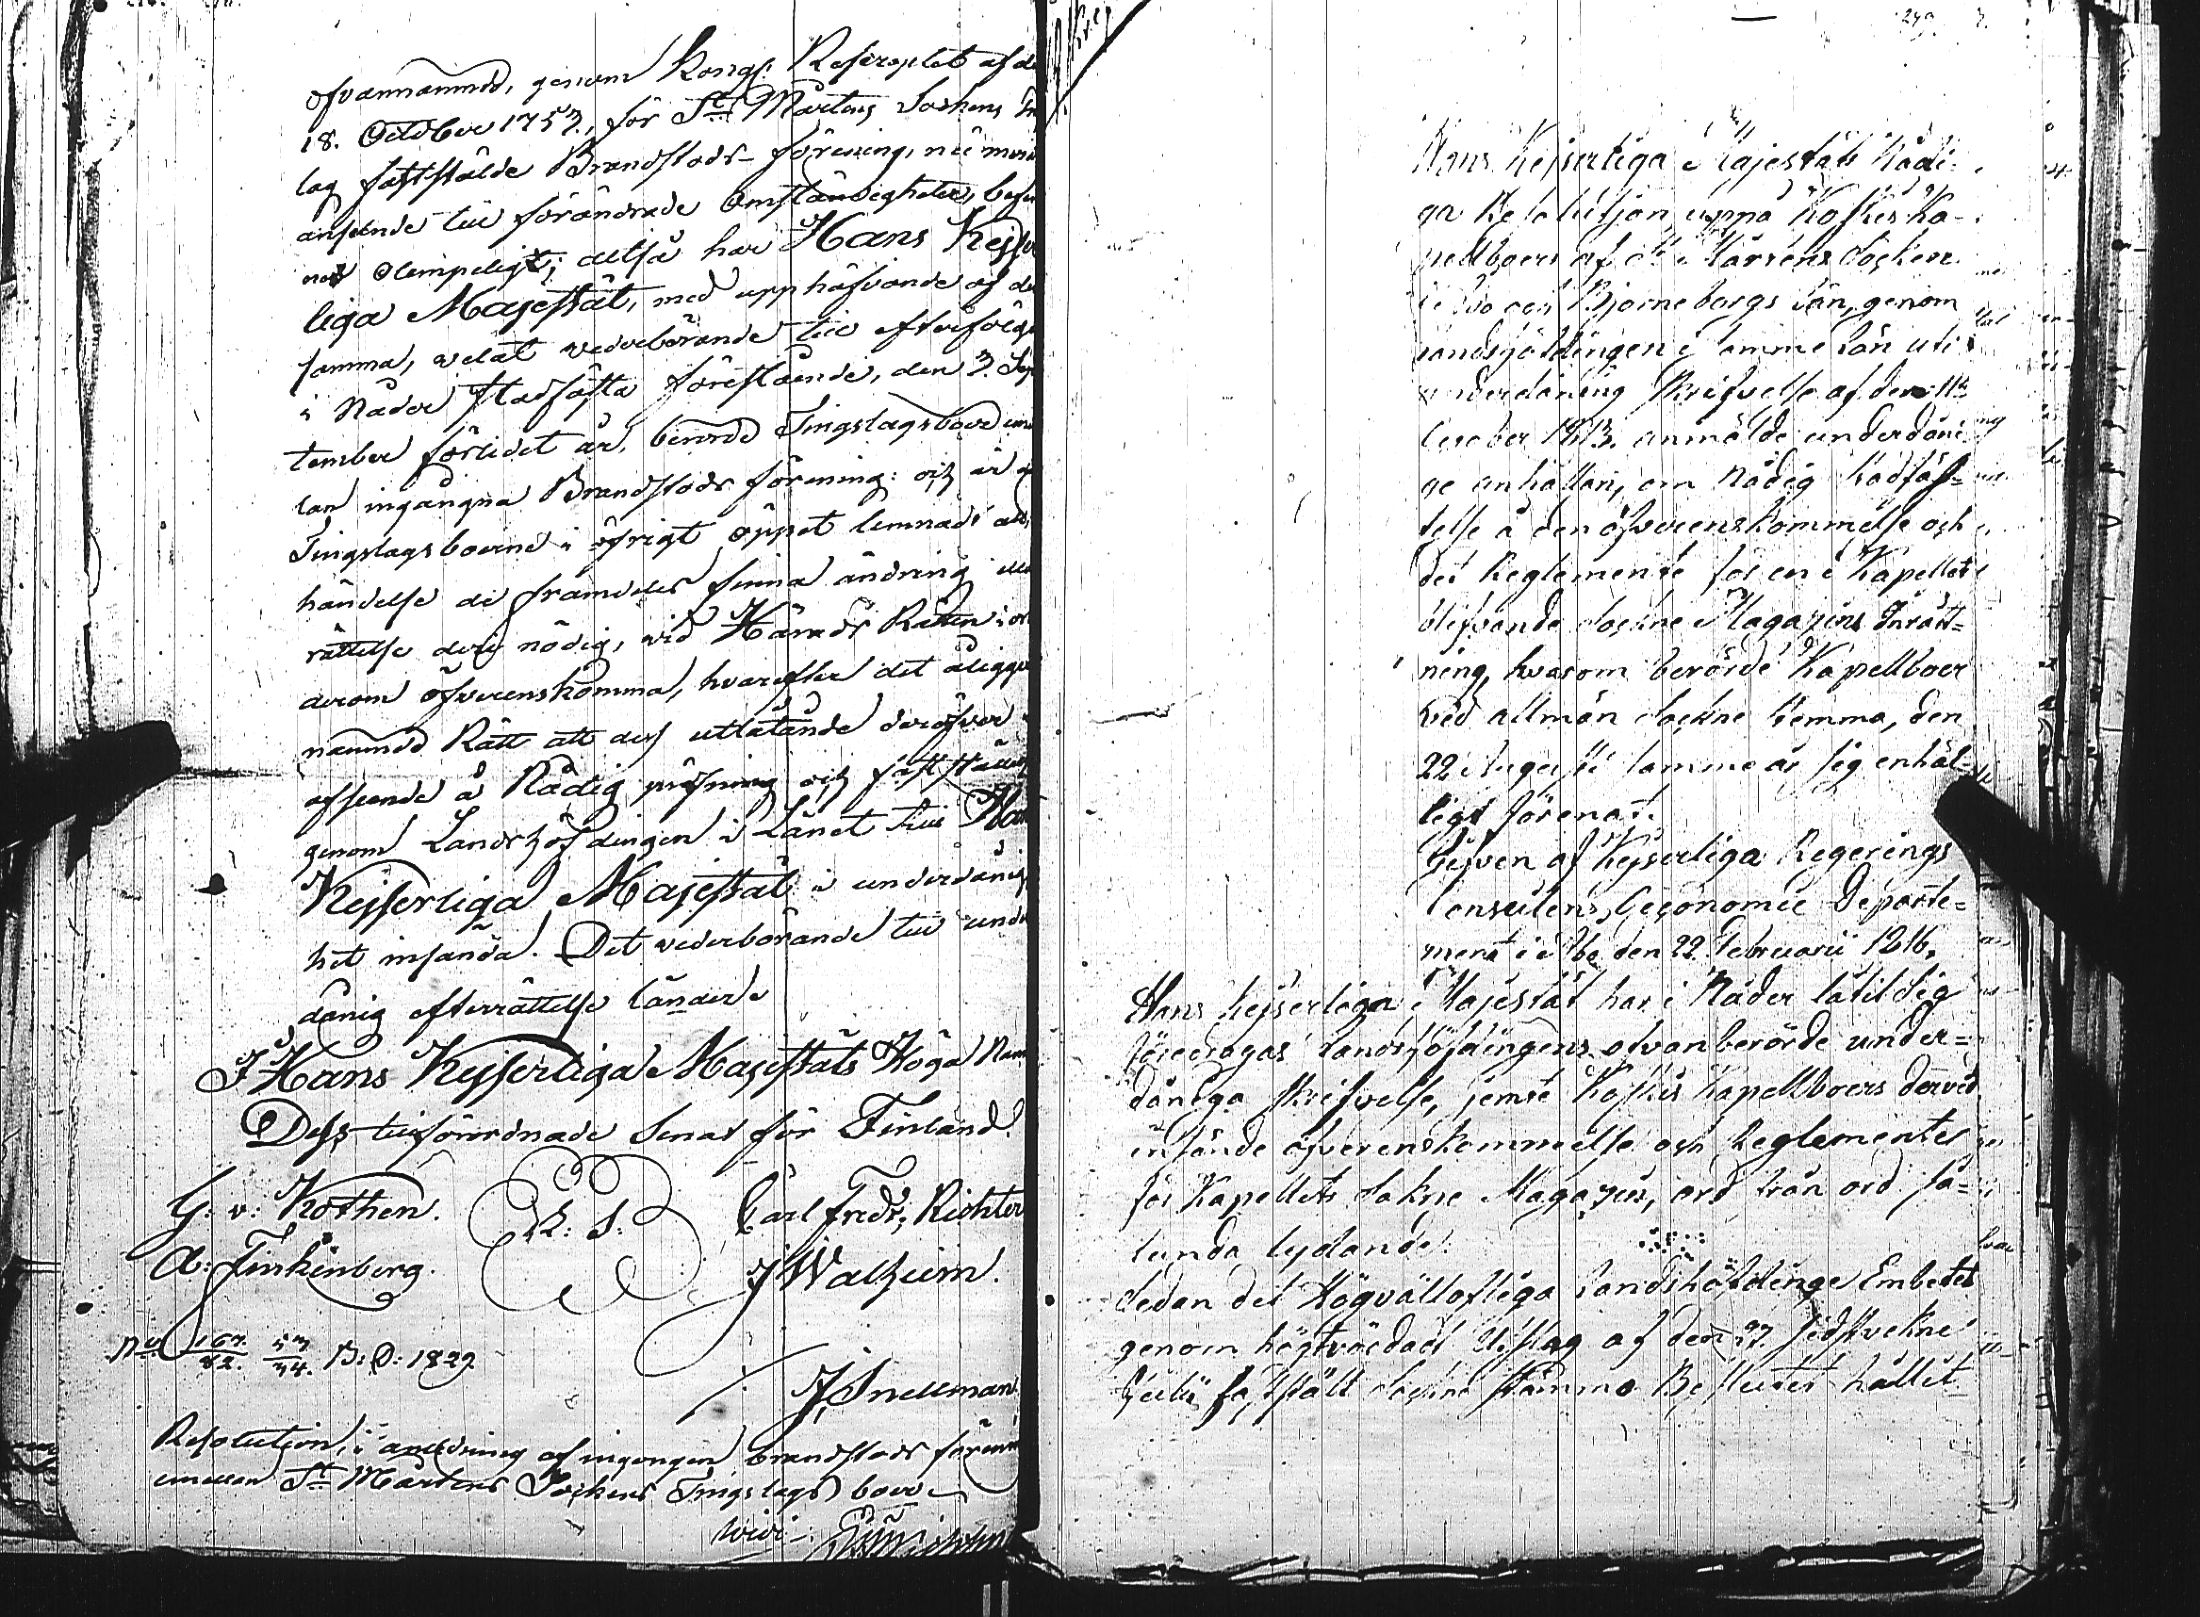 ofvannämnd, genom Kongl. Rescriptet af de
18. October 1753, för S:t Mårtens Sockens
lag fastställde Brandstods-förening, nu mera
anseende till förändrade Omständigheter,
olempeligt; altså har Hans Kejser
liga Majestät, med upphäfvande af de
samma, velat vederbörande till efterföljd
i Nåder stadfästa förestående, den 3. Sep
tember förlidet år, berörde Tingslagsboer emel
lan ingångna Brandstods förening: och är
Tingslagsboerne i öfrigt öppet lemnadt att,
händelse de framdeles finna ändring
rättelse deri nödig, vid Härads Rätten
derom öfverenskomma, hvarefter det åligger
nämnde Rätt att dess utlåtande deröfver
afseende å Nådig pröfning och fastställelse
genom Landshöfdingen i Länet till Hans
Kejserliga Majestät i underdånig
het insända. Det vederbörande till under
dånig efterrättelse länder.
I Hans Kejserliga Majestäts Höga Namn
Dess tillförordnade Senat för Finland.
G. v. Kothen. L. S. Carl Fredr. Richter
A. Finkenberg. J Walheim.
N:o 167/82. 53/34. B: D: 1829
J. Snellman
Resolution, i anledning af ingången brandstods förenin
emellan S:t Mårtens Sockens Tingslags boer
279
Hans Kejserliga Majestäts Nådi-
ga Resolution uppå Koskis Ka-
pellboers af S:t Mårtens Socken
i Åbo och Björneborgs Län, genom
Landshöfdingen i samme Län uti
underdånig skrifvelse af den 11
October 1813. anmälde underdåni-
ge anhållan, om Nådig stadfäs-
telse å den öfverenskommelse och
det Reglemente för en i Kapellet
blifvande Sockne Magazins Inrätt-
ning, hvarom berörde Kapellboer
vid allmän Sockne Stemma, den
22 Augusti samme år sig enhäl-
ligt förenat.
Gifven af Kejserliga Regerings
Conseilens Oeconomie Departe-
ment i Åbo den 22. Februarii 1816.
Hans Kejserliga Majestät har i Nåder låtit sig
föredragas Landshöfdingens ofvanberörde under-
dåniga skrifvelse, jemte Koskis Kapellboers dervid
insände öfverenskommelse och Reglemente
för Kapellets Sokne Magazin, ord från ord så-
lunda lydande:
Sedan det Högvällofliga Landshöfdinge Embetet
genom högtvördadt Utslag af den 27. sidstvekne
Julii fastställt Sockne Stämmo Beslutet hållit